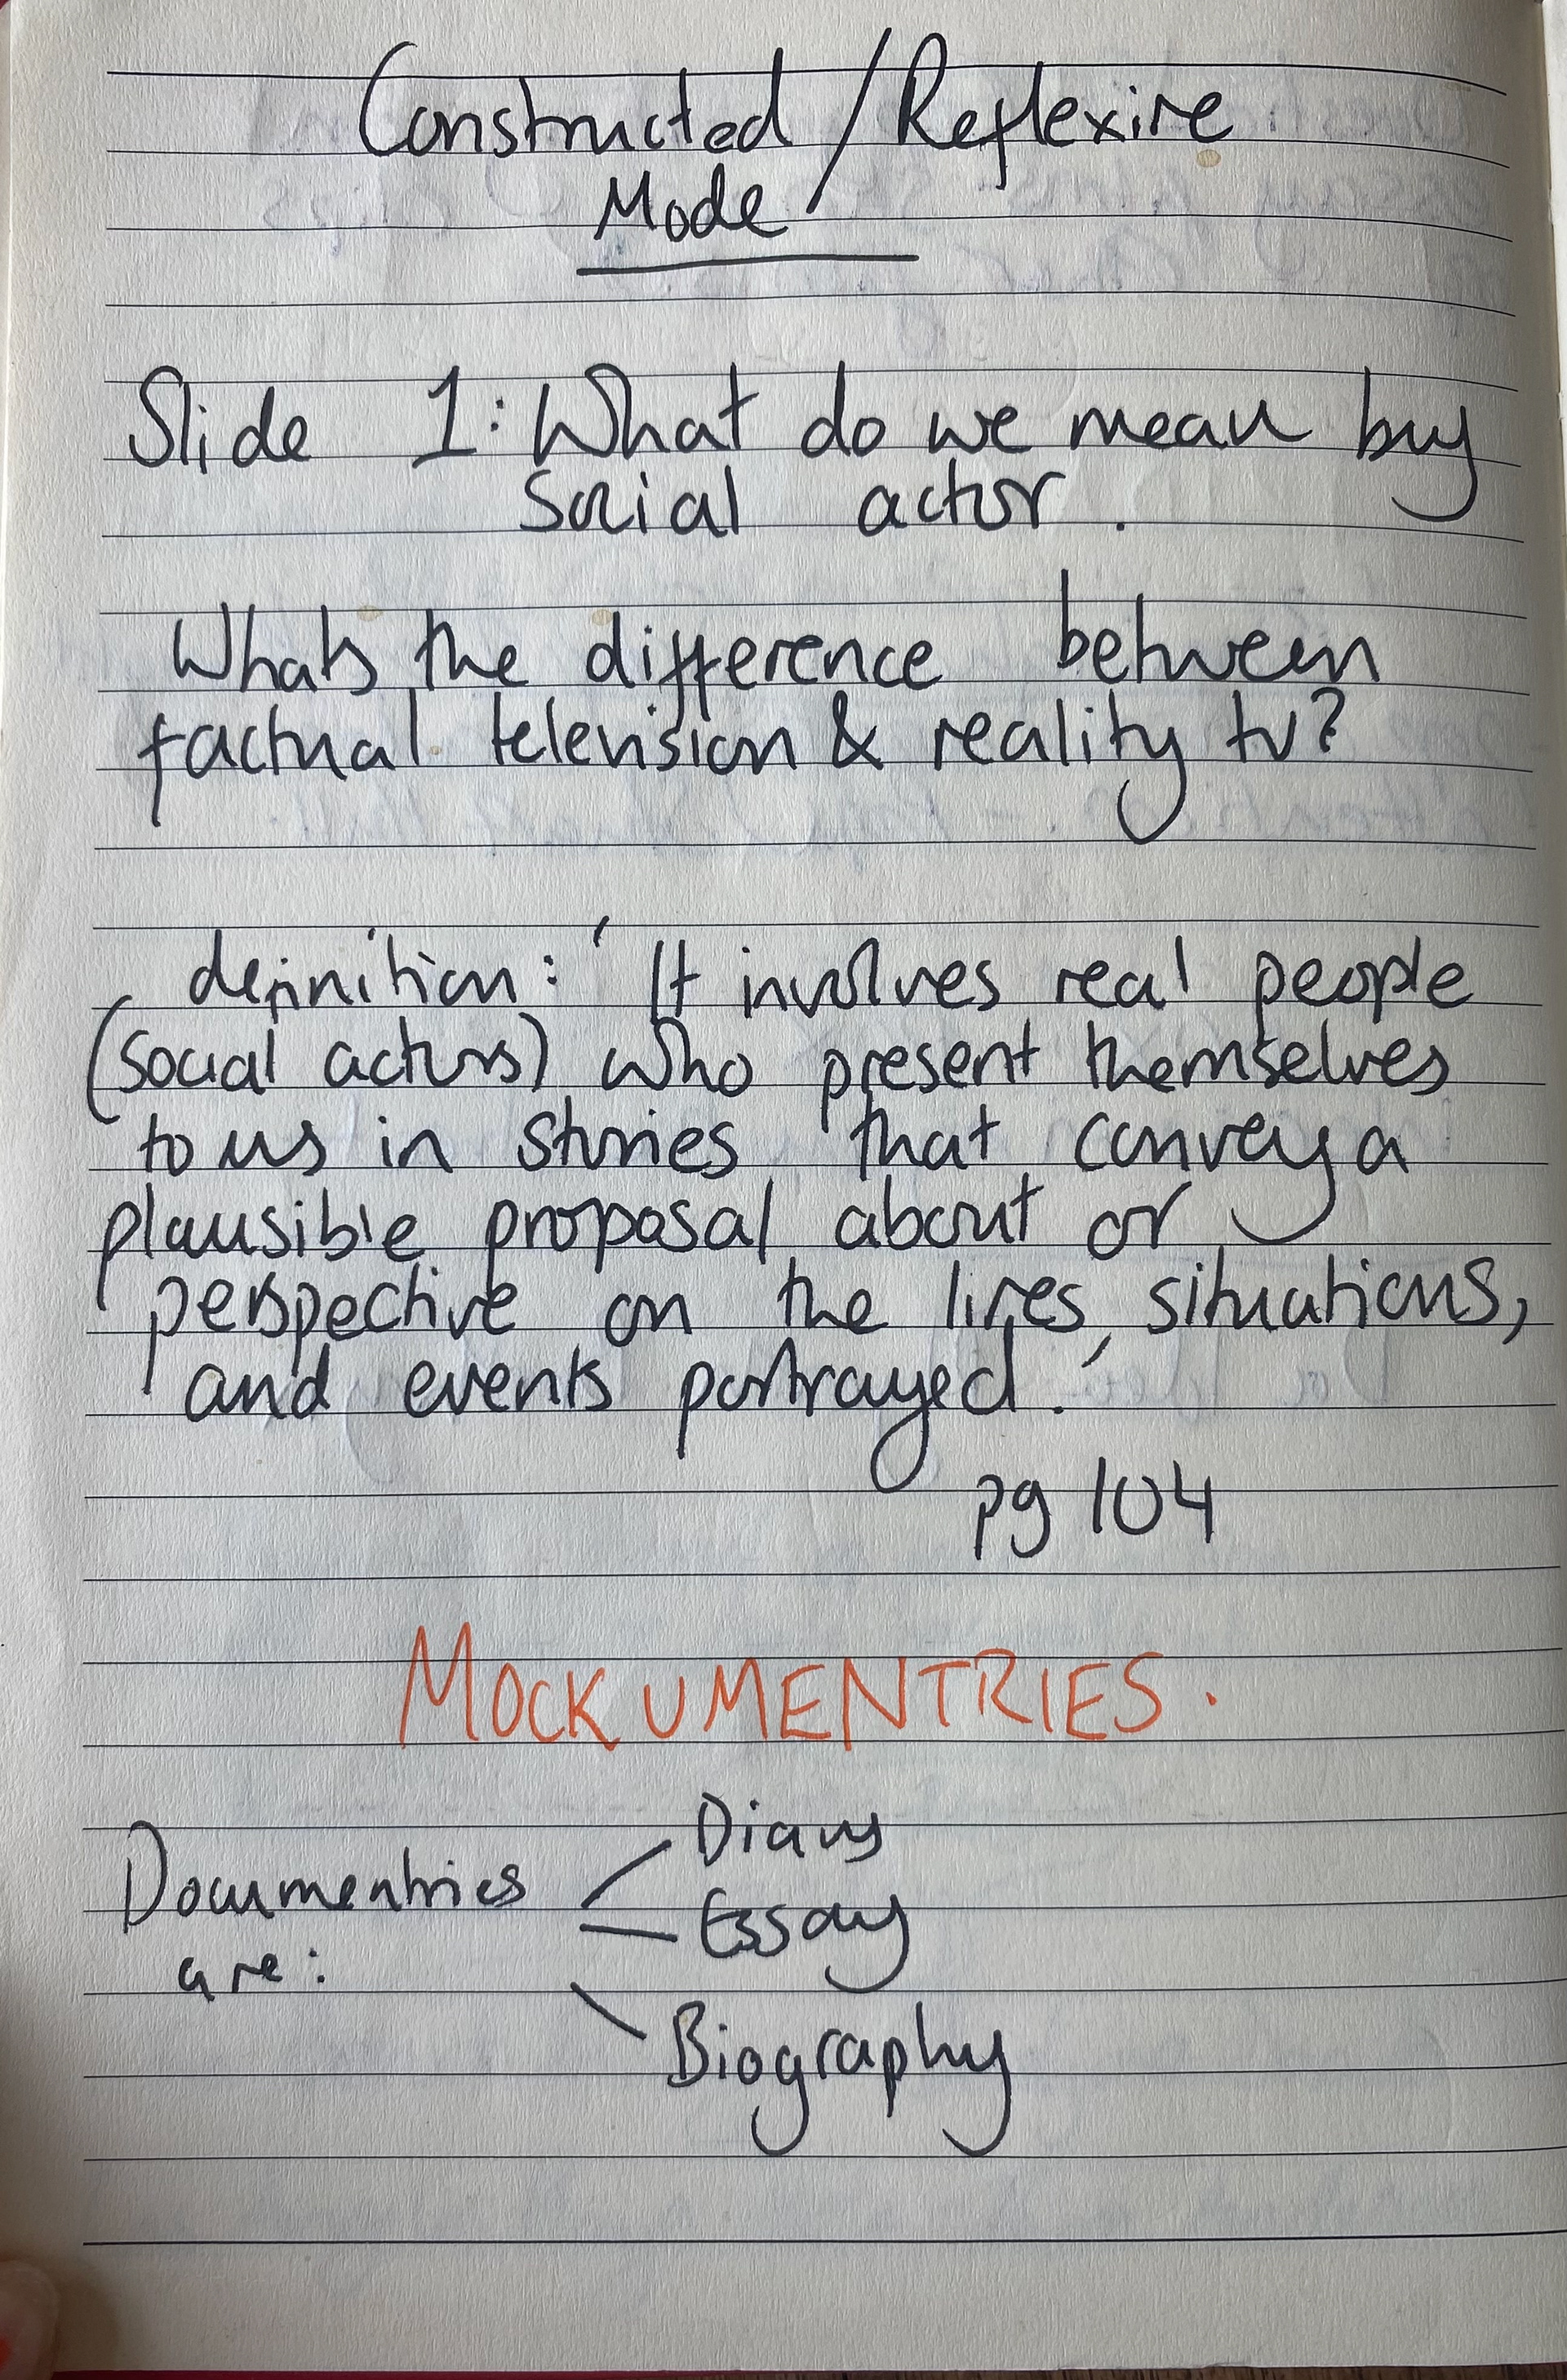 Constructed / Reflexive
Mode
Slide 1: What do we mean buy
social actor.
Whats the difference between
factual television & reality tv?
definition: ' It involves real people
(social actors) who present themselves
to us in stories that convey a
plausible proposal about or
perspective on the lives, situations,
and events portrayed.'
pg 104
MOCKUMENTRIES.
Documentries
are:
Diary
Essay
Biography